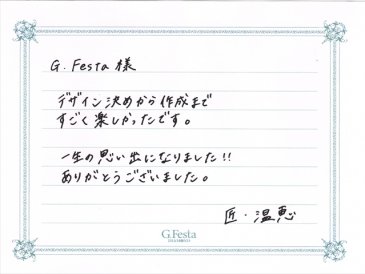 G.Festa様
デザイン決めから作成まで
すごく楽しかったです。
一生の思い出になりました!!
ありがとうございました。
匠・温恵
G.Festa